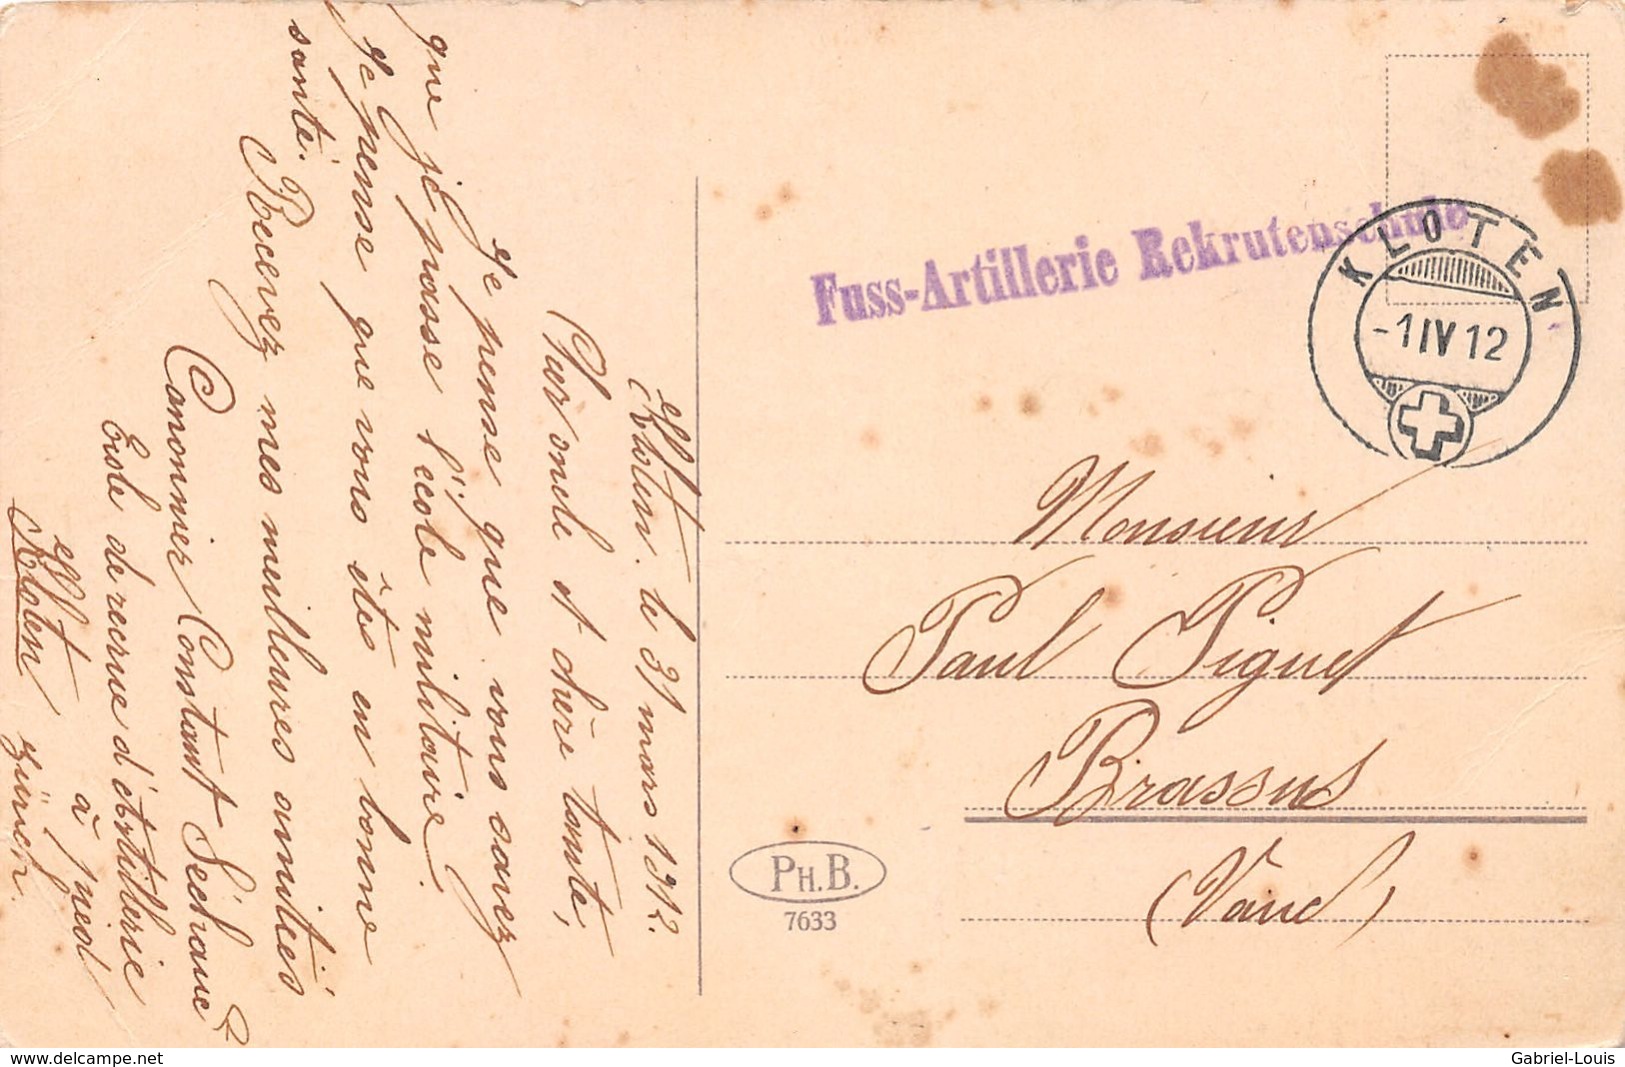 Kloten. le 31 mars 1912.
Cher oncle et chère tante,
Je pense que vous savez
que je passe l'école militaire.
Je pense que vous êtes en bonne
santé.
Recevez mes meilleures amitiés
Canonnier Constant Séchaud
École de recrue d'Artillerie
à pied
Kloten Zürich.
Fuss-Artillerie Rekrutenschule
KLOTEN
-1 IV 12
Monsieur
Paul Piguet
Brassus
(Vaud)
PH.B.
7633
www.delcampe.net
Gabriel-Louis